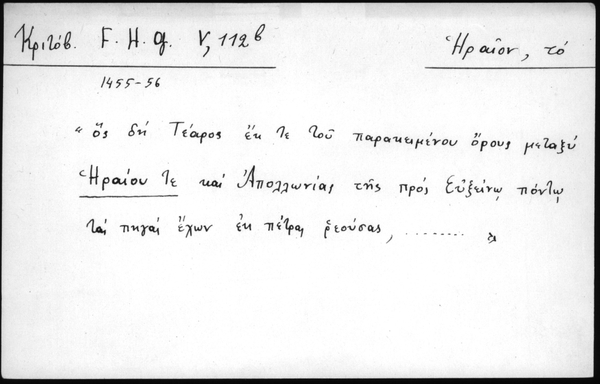 Κριτόβ. F. H. G. V, 112 b
Ἡραῖον, τό
1455-56
"ὃς δή Τέαρος ἔκ τε τοῦ παρακειμένου ὄρους μεταξύ
Ἡραίου τε καί Ἀπολλωνίας τῆς πρός Εὐξείνῳ πόντῳ
τάς πηγάς ἔχων ἐκ πέτρας ῥεούσας, ........ "